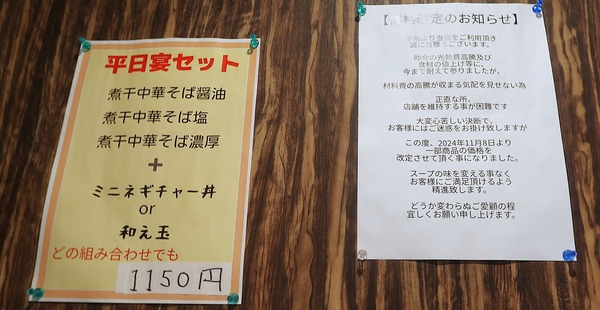 平日宴セット
煮干中華そば醤油
煮干中華そば塩
煮干中華そば濃厚
+
ミニネギチャー丼
or
和え玉
どの組み合わせでも
1150円
改定のお知らせ】
より当店をご利用頂き
誠に有難うございます。
昨今の光熱費高騰及び
食材の値上げ等に、
今まで耐えて参りましたが、
材料費の高騰が収まる気配を見せない為
正直な所、
店舗を維持する事が困難です
大変心苦しい決断で、
お客様にはご迷惑をお掛け致しますが
この度、2024年11月8日より
一部商品の価格を
改定させて頂く事になりました。
スープの味を変える事なく
お客様にご満足頂けるよう
精進致します。
どうか変わらぬご愛顧の程
宜しくお願い申し上げます。